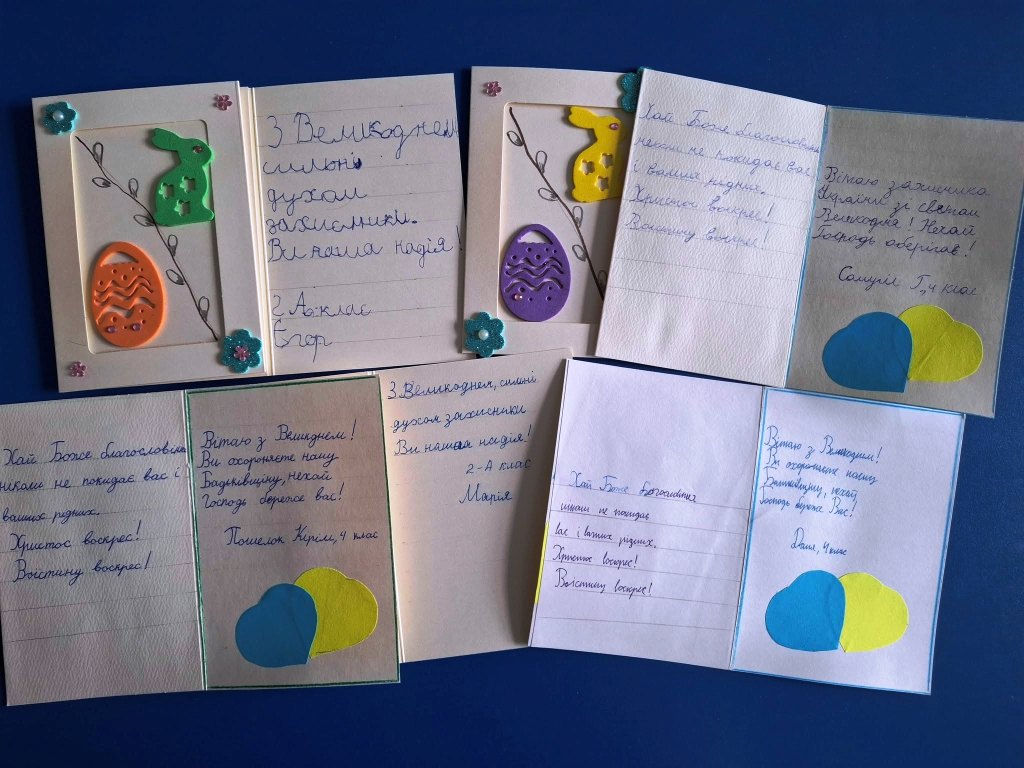 З Великоднем
сильні
духом
захисники.
Ви наша надія!
2 А клас
Єгор
Хай Боже благословіння
ніколи не покидає вас
і ваших рідних.
Христос воскрес!
Воістину воскрес!
Вітаю захисника
України зі святом
Великодня! Нехай
Господь оберігає!
Самуїл Г., 4 клас
Хай Боже благословіння
ніколи не покидає вас і
ваших рідних.
Христос воскрес!
Воістину воскрес!
Вітаю з Великднем!
Ви охороняєте нашу
Батьківщину, нехай
Господь береже вас!
Пошелок Кіріл, 4 клас
З Великоднем, сильні
духом захисники
Ви наша надія!
2-А клас
Марія
Хай Боже
ніколи не покидає
вас і ваших рідних.
Христос воскрес!
Воістину воскрес!
Вітаю з Великоднем!
Ви охороняєте нашу
Батьківщину, нехай
Господь береже Вас!
4 клас